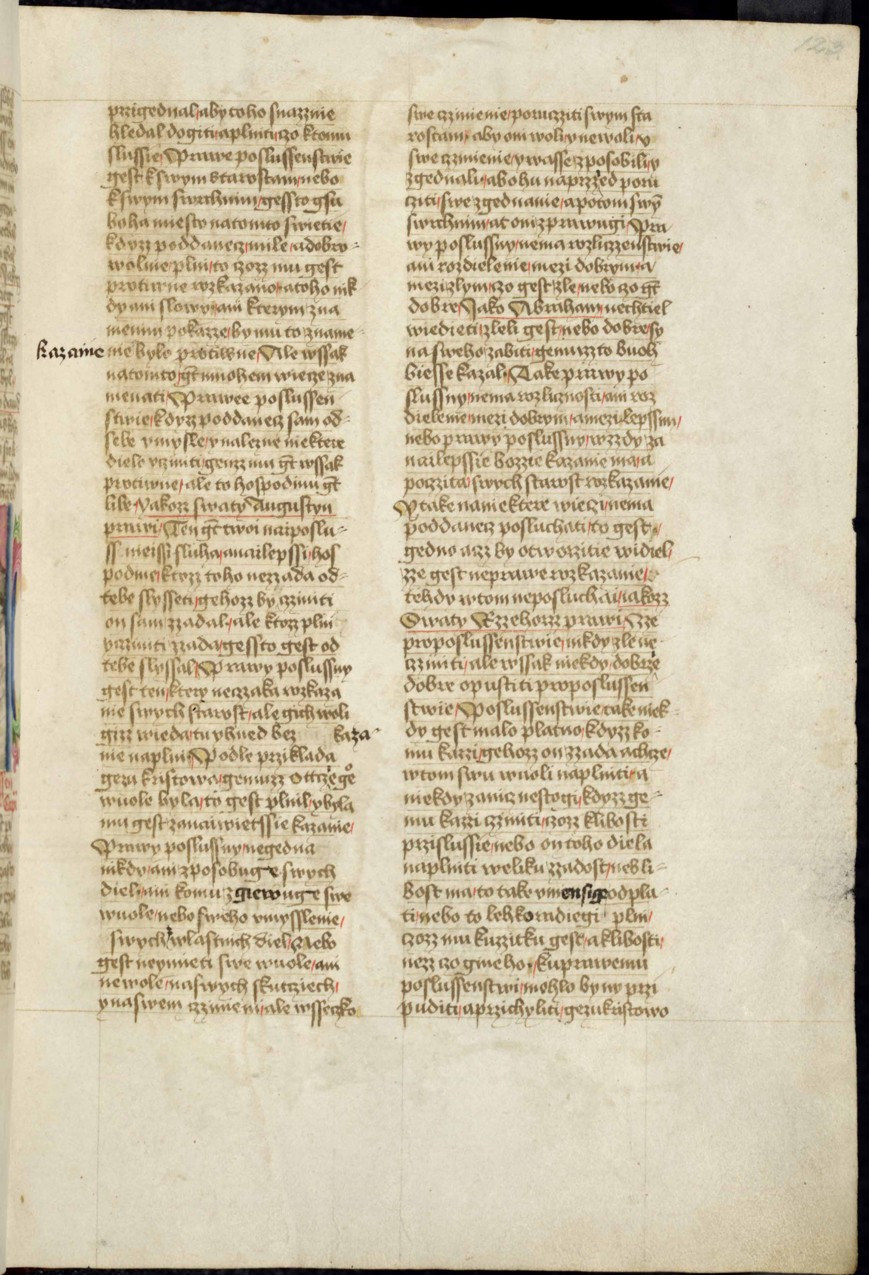 123
przigednal/aby toho snaznie
hledal dogiti/a plniti/czo k tomu
slussie/ Prawe poslussenstwie
gest k swym starostam/nebo
k swym swrchnim/gessto gsu
boha miesto na tomto swietie/
kdyzz poddanecz/mile/a dobro=
wolnie plni/to czozz mu gest
protiwne rozkazano/a toho nik
dy ani slowy/ani kterym zna
menim pokazze/by mu to zname=
kazanie nie bylo protiwne/ Ale wssak
na tomto/gt mnohem wiecze zna
menati/ Prawee poslussen
stwie/kdyzz poddanecz sam od=
sebe vmysle/y nalezne niektere
dielo vcziniti/genzz mu gt wssak
protiwne/ale to hospodinu gt
libe/ Jakozz swaty Augustyn
prawi/ Ten gt twoi naiposlu=
ssneissi sluha/a nailepssi/hos
podine/ktozz toho nezzada od=
tebe slysseti/gehozz by cziniti
on sam zzadal/ale ktozz plni
vcziniti zzada/gessto gest od
tebe slyssal/ Prawy poslussny
gest ten/ktery neczaka rozkaza
nie swych starost/ale gich woli
gizz wieda/tu yhned bez kaza=
nie naplni/ Podle przikladu
gezu kristowa/gemuzz Ottcze geo
wuole byla/to gest plnil/y byla
mu gest za naiwietssie kazanie/
Prawy poslussny/negedna
nikdy/ani zposobuge swych
diel/ani komu zgiewuge swe
wuole/nebo sweho vmysslenie/
swych wlastnich diel/ Nebo
gest neymieti swe wuole/ani
newole/na swych skutcziech/
y na swem czinieni/ale wsseczko
swe czinienie/porucziti swym sta
rostam/aby oni woli/y newoli/y
swe czinienie/y wasse zposobili/y
zgednali/a bohu naprzed poru
cziti/swe zgednanie/a potom swy
swrchnim/at oni zprawugi/ Pra
wy poslussny/nema rozliczzenstwie/
ani rozdielenie/mezi dobrym/a
mezi zlym/czo gest zle/nebo czo gt
dobre/ Jako Abraham/nechtiel
wiedieti/zleli gest/nebo dobre/sy
na sweho zabiti/gemuzzto buoh
biesse kazal/ Take prawy po
slussny/nema rozlicznosti/ani roz
dielenie/mezi dobrym/a mezi lepssim/
nebo prawy poslussny/wzzdy za
nailepssie bozzie kazanie ma/a
poczita/swych starost rozkazanie/
Y take na niektere wieczi/nema
poddanecz posluchati/to gest/
gedno azz by otworzitie widiel/
zze gest neprawe rozkazanie/
tehdy w tom neposluchai/iakozz
Swaty Rzzehorz prawi/ Zze
pro poslussenstwie/nikdy zle ne
cziniti/ale wssak niekdy/dobrze
dobre opustiti pro poslussen
stwie/ Poslussenstwie take niek
dy gest malo platno/kdyzz ko=
mu kazi/gehozz on zzada a chcze/
w tom swu wuoli naplniti/a
niekdy za nicz nestogi/kdyzz ge=
mu kazi cziniti/czozz k libosti
prislussie/nebo on toho diela
naplniti weliku zzadost/neb li=
bost ma/to take vmensige odpla=
ti/nebo to lehko radiegi plni/
czozz mu k uzitku gest/a k libosti/
nezz czo gineho/ K uprawemu
poslussenstwi/mohlo by ny przi
puditi/a przichyliti/gezu kristowo